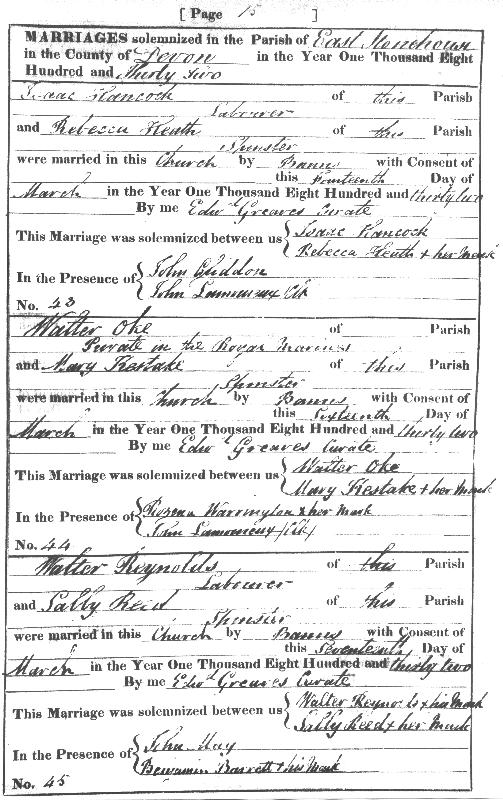 [ Page 15 ]
MARRIAGES solemnized in the Parish of East Stonehouse
in the County of Devon in the Year One Thousand Eight
Hundred and Thirty Two
Isaac Hancock of this Parish
Labourer
and Rebecca Heath of this Parish
Spinster
were married in this Church by Banns with Consent of
this Fourteenth Day of
March in the Year One Thousand Eight Hundred and thirty two
By me Edwd Greaves Curate
This Marriage was solemnized between us { Isaac Hancock
Rebecca Heath + her Mark
In the Presence of { John Gliddon
John Clk
No. 43
Walter Oke of Parish
Private in the Royal Marines
and Mary Kestake of this Parish
Spinster
were married in this Church by Banns with Consent of
this Sixteenth Day of
March in the Year One Thousand Eight Hundred and thirty two
By me Edwd Greaves Curate
This Marriage was solemnized between us { Walter Oke
Mary Kestake + her Mark
In the Presence of { Warrington x her Mark
John (Clk)
No. 44
Walter Reynolds of this Parish
Labourer
and Sally Reed of this Parish
Spinster
were married in this Church by Banns with Consent of
this Seventeenth Day of
March in the Year One Thousand Eight Hundred and thirty two
By me Edwd Greaves Curate
This Marriage was solemnized between us { Walter Reynolds + his Mark
Sally Reed + her Mark
In the Presence of { John May
Benjamin Barrett + his Mark
No. 45